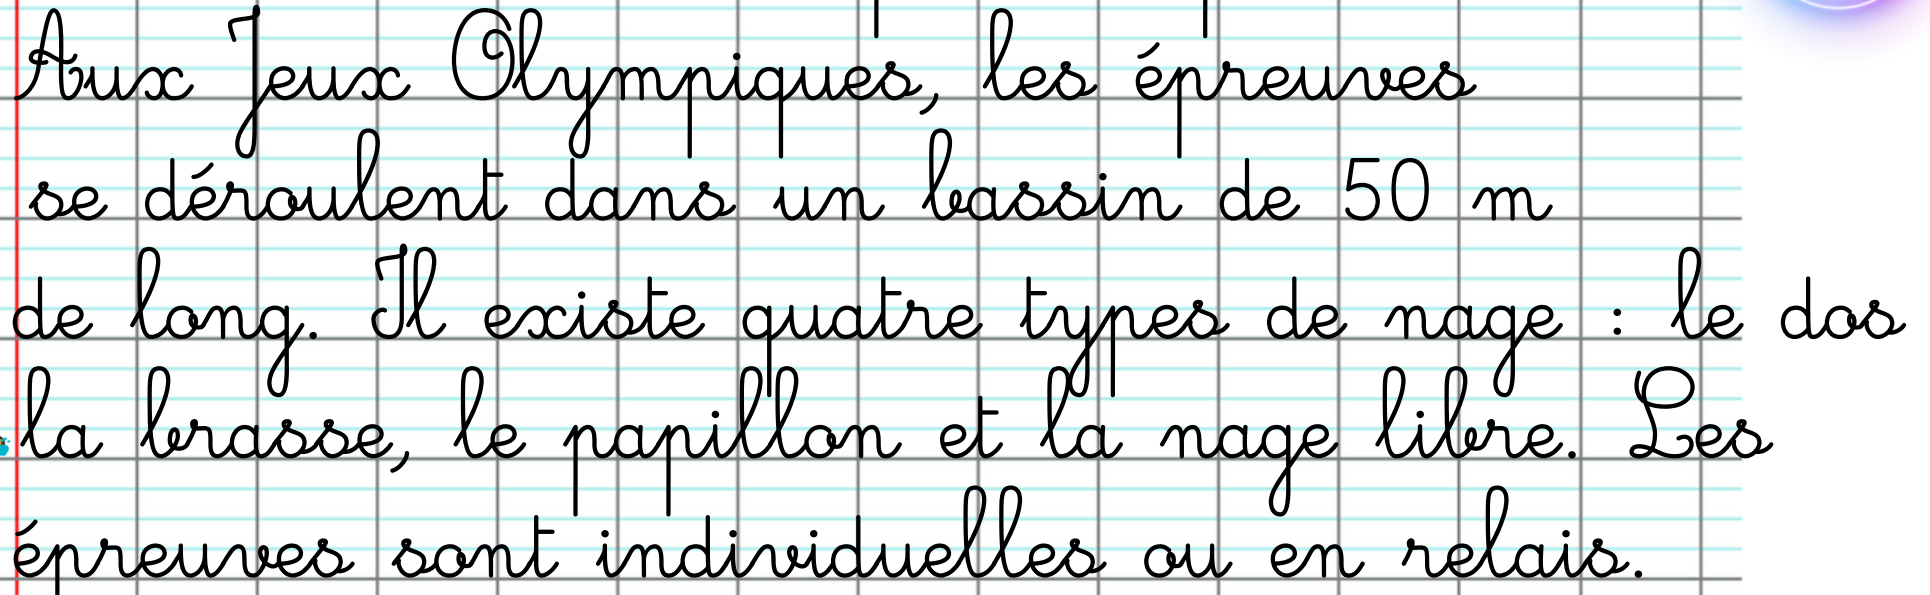 Aux Jeux Olympiques, les épreuves
se déroulent dans un bassin de 50 m
de long. Il existe quatre types de nage : le dos
la brasse, le papillon et la nage libre. Les
épreuves sont individuelles ou en relais.